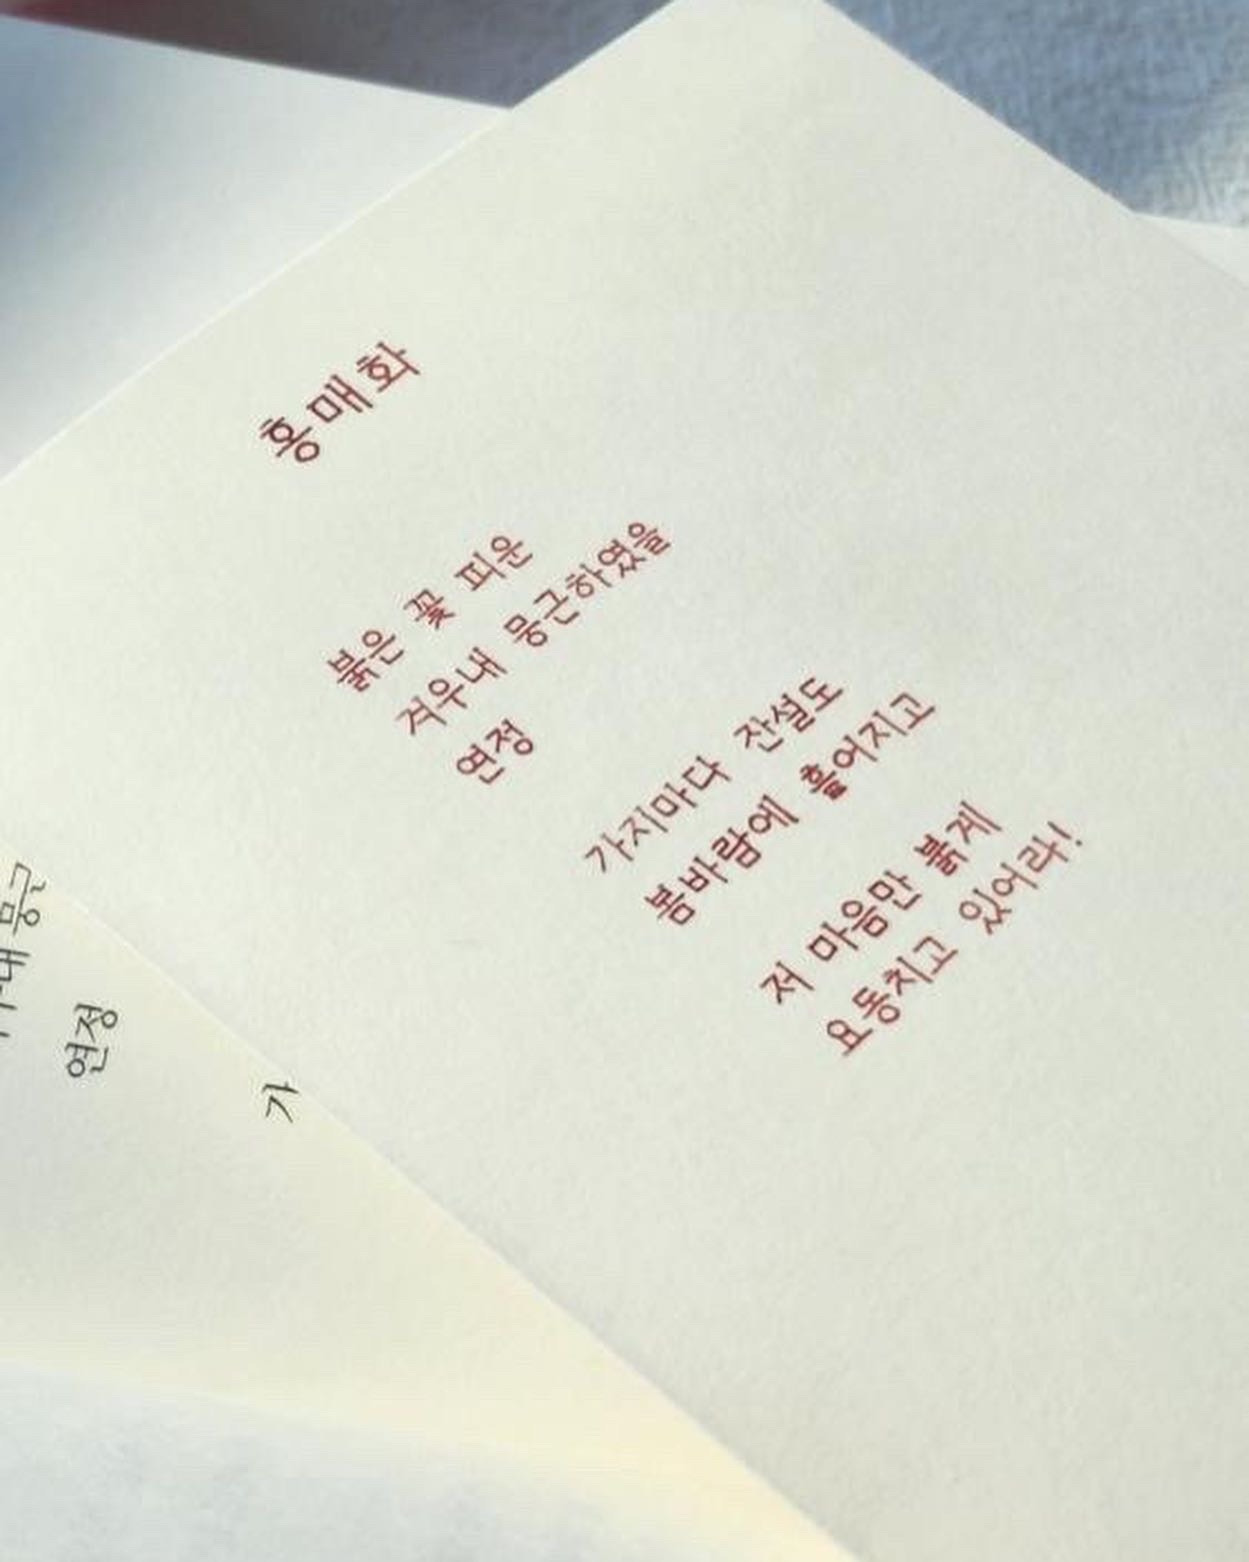 홍매화
붉은 꽃 피운
겨우내 뭉근하였을
연정
가지마다 잔설도
봄바람에 흩어지고
저 마음만 붉게
요동치고 있어라!
내 뭉근
연정
가